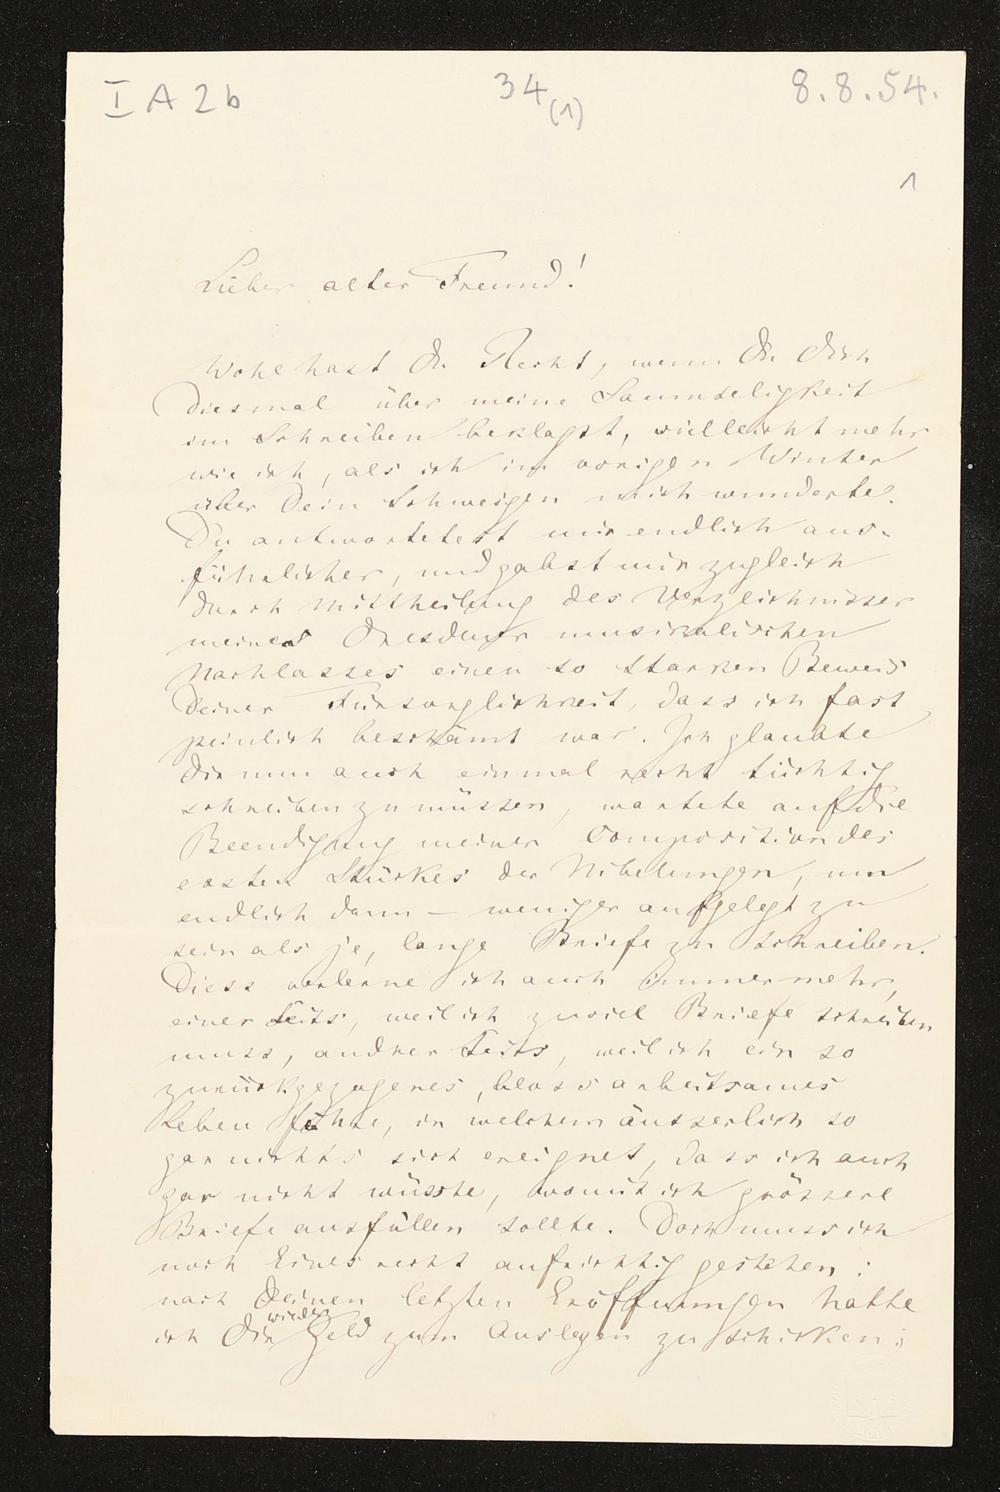 I A 2 b
34 (1)
8. 8. 54.
1
Lieber alter Freund!
Wohl hast Du Recht, wenn Du Dich
diesmal über meine Saumseligkeit
im Schreiben beklagst, vielleicht mehr
wie ich, als ich im vorigen Winter
über Dein Schweigen mich wunderte.
Du antwortetest mir endlich aus-
führlicher, und gabst mir zugleich
durch Mittheilung des Verzeichnisses
meines Dresdener musikalischen
Nachlasses einen so starken Beweis
Deiner Fürsorglichkeit, dass ich fast
peinlich beschämt war. Ich glaubte
Dir nun auch einmal recht tüchtig
schreiben zu müssen, wartete auf die
Beendigung meiner Composition des
ersten Stückes der Nibelungen, um
endlich dann — weniger aufgelegt zu
sein als je, lange Briefe zu schreiben.
Diess verlerne ich auch immer mehr,
einer Seits, weil ich zuviel Briefe schreiben
muss, andrer Seits, weil ich ein so
zurückgezogenes, bloss arbeitsames
Leben führe, in welchem äusserlich so
gar nichts sich ereignet, dass ich auch
gar nicht wüsste, womit ich grössere
Briefe ausfüllen sollte. Doch muss ich
noch Eines recht aufrichtig gestehen:
nach Deinen letzten Eröffnungen hatte
wieder
ich Dir Geld zum Auslegen zu schicken;